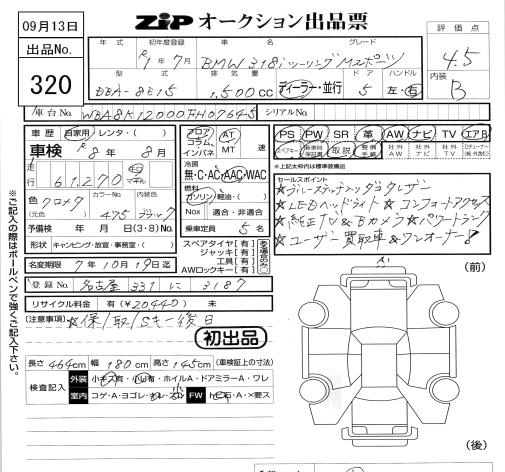 09月13日
ZIP オークション出品票
出品No.
320
年式 初年度登録 車名 グレード
R1年 7月 BMW 318iツーリング Mスポーツ
型式 排気量 ドア ハンドル
DBA-8E15 1,500cc ディーラー・並行 5 左・右
評価点
4.5
内装
B
車台No. WBA8K12000FH07645 シリアルNo.
車歴 自家用・レンタ・( )
車検 R8年 8月
走行 61,270 km マイル
色 クロメタ カラーNo. 475 内装色 ブラック
(元色)
予備検 年 月 日 (3・8)No.
形状 キャンピング・放宣・事務室・( )
名変期限 7年10月19日迄
登録No. 名古屋 331 に 3187
リサイクル料金 有(¥20,440) 未
フロア コラム インパネ AT MT 速
冷房
無・C・AC・AAC・WAC
燃料
ガソリン・軽油・( )
Nox 適合・非適合
乗車定員 5名
スペアタイヤ[有]
ジャッキ[有]
工具[有]
AWロックキー[有]
PS PW SR 革 AW ナビ TV エアB
スペアキー 取説 社外AW 社外ナビ 社外TV
セールスポイント
★ブルーステッチブラックダコタレザー
★LEDヘッドライト★コンフォートアクセス
★純正TV&Bカメラ★パワートランク
★ユーザー買取車&ワンオーナー!
(注意事項) ★保/取/Sキー後日
初出品
長さ 464cm 幅 180cm 高さ 145cm (車検証上の寸法)
検査記入 外装 小キズ有・小凹有・ホイルA・ドアミラーA・ワレ
室内 コゲ・A・ヨゴレ FW トビ石・A・×要ス
A1
(前)
(後)
※ご記入の際はボールペンで強くご記入下さい。